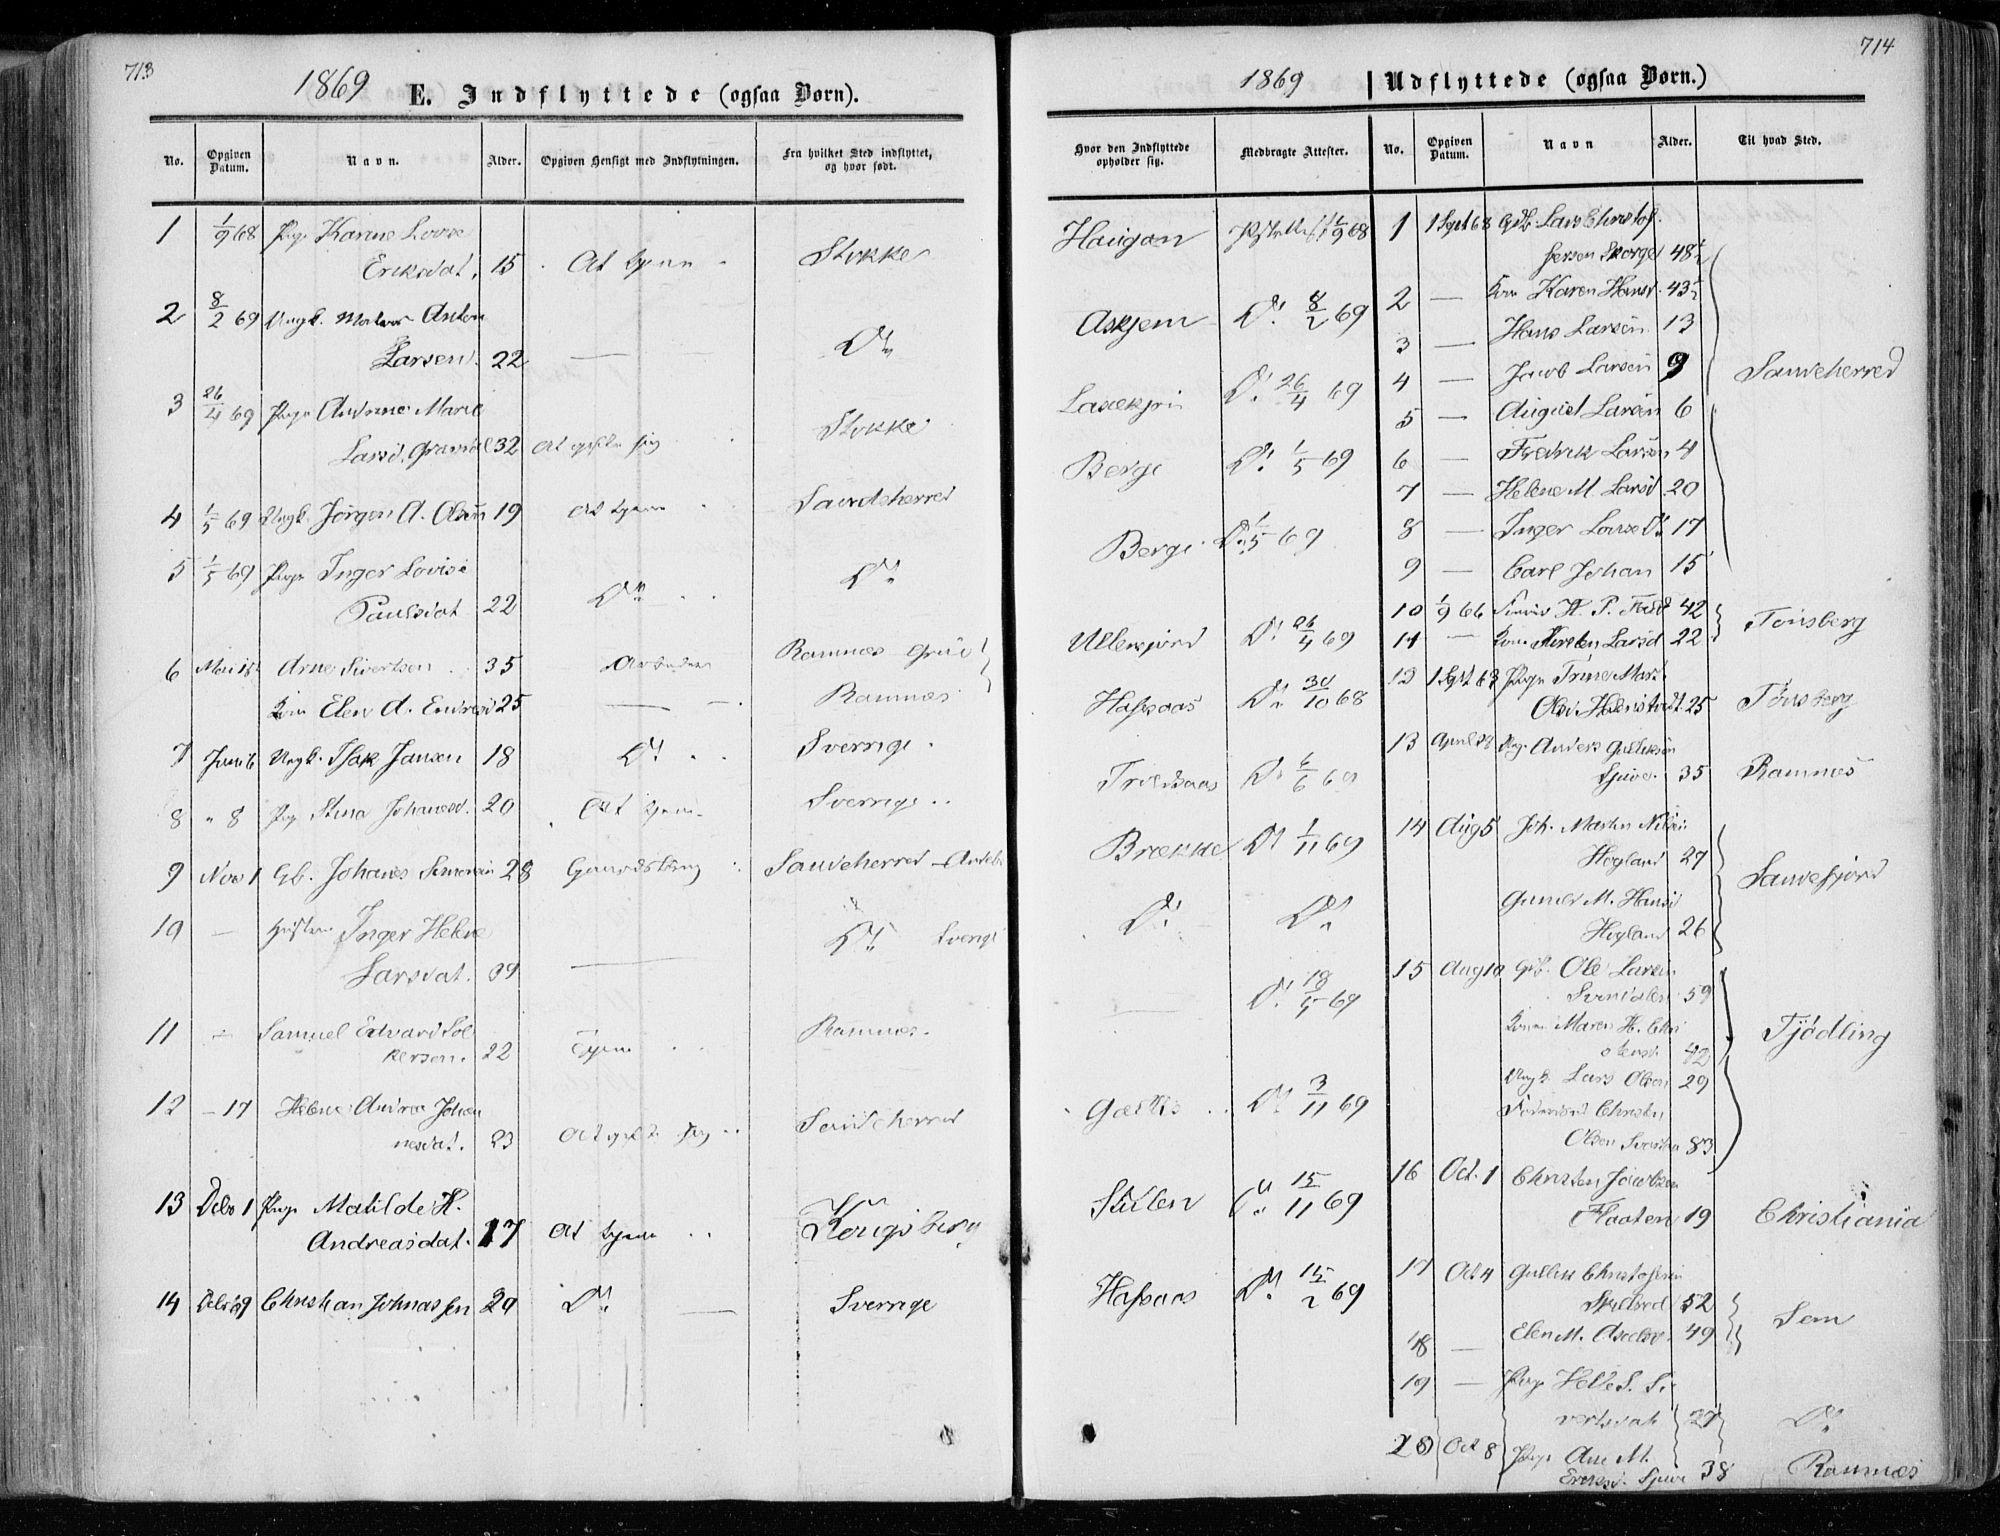 713
1869 E. Indflyttede (ogsaa Børn).
No. Opgiven Datum. Navn. Alder. Opgiven Hensigt med Indflytningen. Fra hvilket Sted indflyttet, og hvor født.
1 1/9 68 Pige Karine Lovise
Eriksdat. 15 At tjene Stokke
2 8/2 69 Ungk. Anton
Larsen. 22 — Do
3 26/4 69 Pige Andrine Marie
Larsd. Gravdal 32 At gifte sig Stokke
4 1/5 69 Ungk. Jørgen A. Olsen 19 At tjene Sandeherred
5 1/5 69 Pige Inger Lovise
Paulsdat 22 Do Do
6 Mai Arne Sivertsen 35 Arbeider Ramnæs
Kone Elen A. Endresd 25 — Ramnæs
7 Juni 6 Ungk. Isak Jansen 18 Do Sverrige.
8 " 8 Pige Stina Johanesd. 20 At tjene Sverrige
9 Nov 1 Gb. Johanes Simensen 28 Gaardsbrug Sandeherred - Andebu
10 — Hustru Inger Helene
Larsdat. 39 — Do Sverige
11 — Samuel Edvard Sol
kersen. 22 Tjene Ramnæs.
12 — 17 Helene Andrea Johan
nesdat. 23 At gifte sig Sandeherred
13 Debr 1 Pige Matilde H.
Andreasdat. 17 At tjene Kongsberg
14 Debr 69 Christian Johnassen 29 Do — Sverrige
714
1869 Udflyttede (ogsaa Børn.)
Hvor den Indflyttede opholder sig. Medbragte Attester. No. Opgiven Datum. Navn Alder. Til hvad Sted.
Haugan 1/9 68 1 1 Sept 68 Gb. Lars Christof
fersen Skorge 48½
Askjem Do 8/2 69 2 — Kone Karen Hansd. 43½
3 — Hans Larsen 13
4 — Jacob Larsen 9 Sandeherred
Do 26/4 69 5 — August Larsen 6
Berge Do 1/5 69 6 — Fredrik Larsen 4
7 — Helene M. Larsd 20
Berge Do 1/5 69 8 — Inger Lovise Do 17
9 — Carl Johan 15
10 1/9 66 H. P. 42 Tønsberg
Do 26/4 69 11 — Kone Larsd 22
Do 30/10 68 12 1 Sept Pige Trine Marie
Olsd. 25 Tønsberg
Do 6/6 69 13 April Ung. Anders Gulliksen
Gjuve. 35 Ramnæs
Brekke Do 1/11 69 14 Aug 5 Joh. Martin Nilsen
Hogland 27 Sandefjord
Do Do Guner M. Hansd
Hogland 26
— Do 18/5 69 15 Aug 10 Gb. Ole Larsen
59
Kone Maren H. Chri
stensd 42 Tjødling
Ungk. Lars Olsen 29
Do 3/11 69 Christen
Olsen 83
Do 15/11 69 16 Oct. 1 Christen Jacobsen
Flaaten 19 Christiania
Do 15/2 69 17 Oct 4 Gullik Christofersen
52 Sem
18 — Elen M. 49
19 — Pige Helle S. Si
vertsdat 27 Do
20 Oct 8 Pige Ane M.
Eriksd. Gjuve 38 Ramnæs